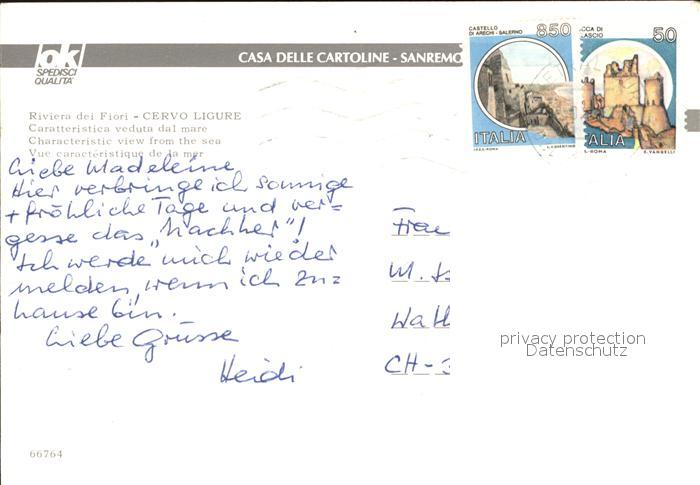 ok
SPEDISCI
QUALITA'
CASA DELLE CARTOLINE - SANREMO
CASTELLO
DI ARECHI - SALERNO
850
ITALIA
I.P.Z.S.-ROMA
CCA DI
ASCIO
50
ALIA
S.-ROMA
E. VANGELLI
Riviera dei Fiori - CERVO LIGURE
Caratteristica veduta dal mare
Characteristic view from the sea
Vue caractéristique de la mer
Liebe Madeleine
Hier verbringe ich sonnige
+ fröhliche Tage und ver=
gesse das „Nachher"!
Ich werde mich wieder
melden, wenn ich zu=
hause bin.
Liebe Grüsse
Heidi
Frau
M.
CH-
privacy protection
Datenschutz
66764